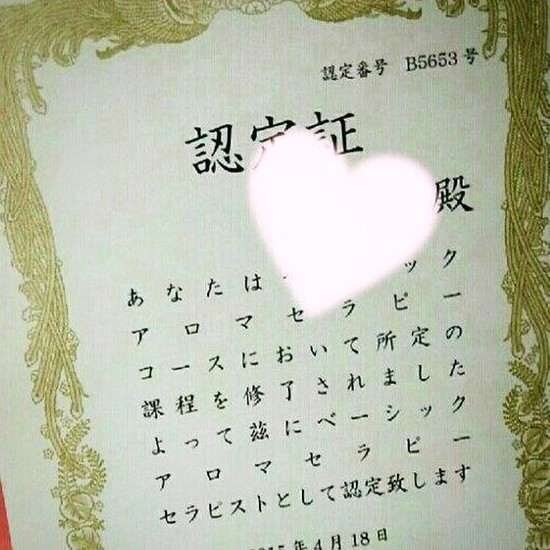 認定番号 B5653号
認定証
殿
あなたは ック
アロマセラピー
コースにおいて所定の
課程を修了されました
よって茲にベーシック
アロマセラピー
セラピストとして認定致します
年4月18日